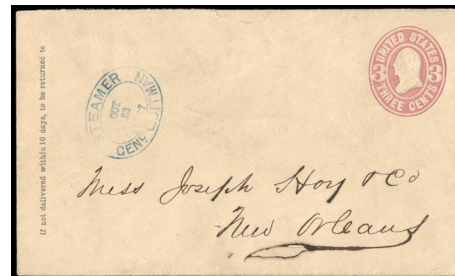 If not delivered within 10 days, to be returned to
STEAMER
OCT
23
GENL
UNITED STATES
3 3
THREE CENTS
Mess Joseph Hoy & Co
New Orleans